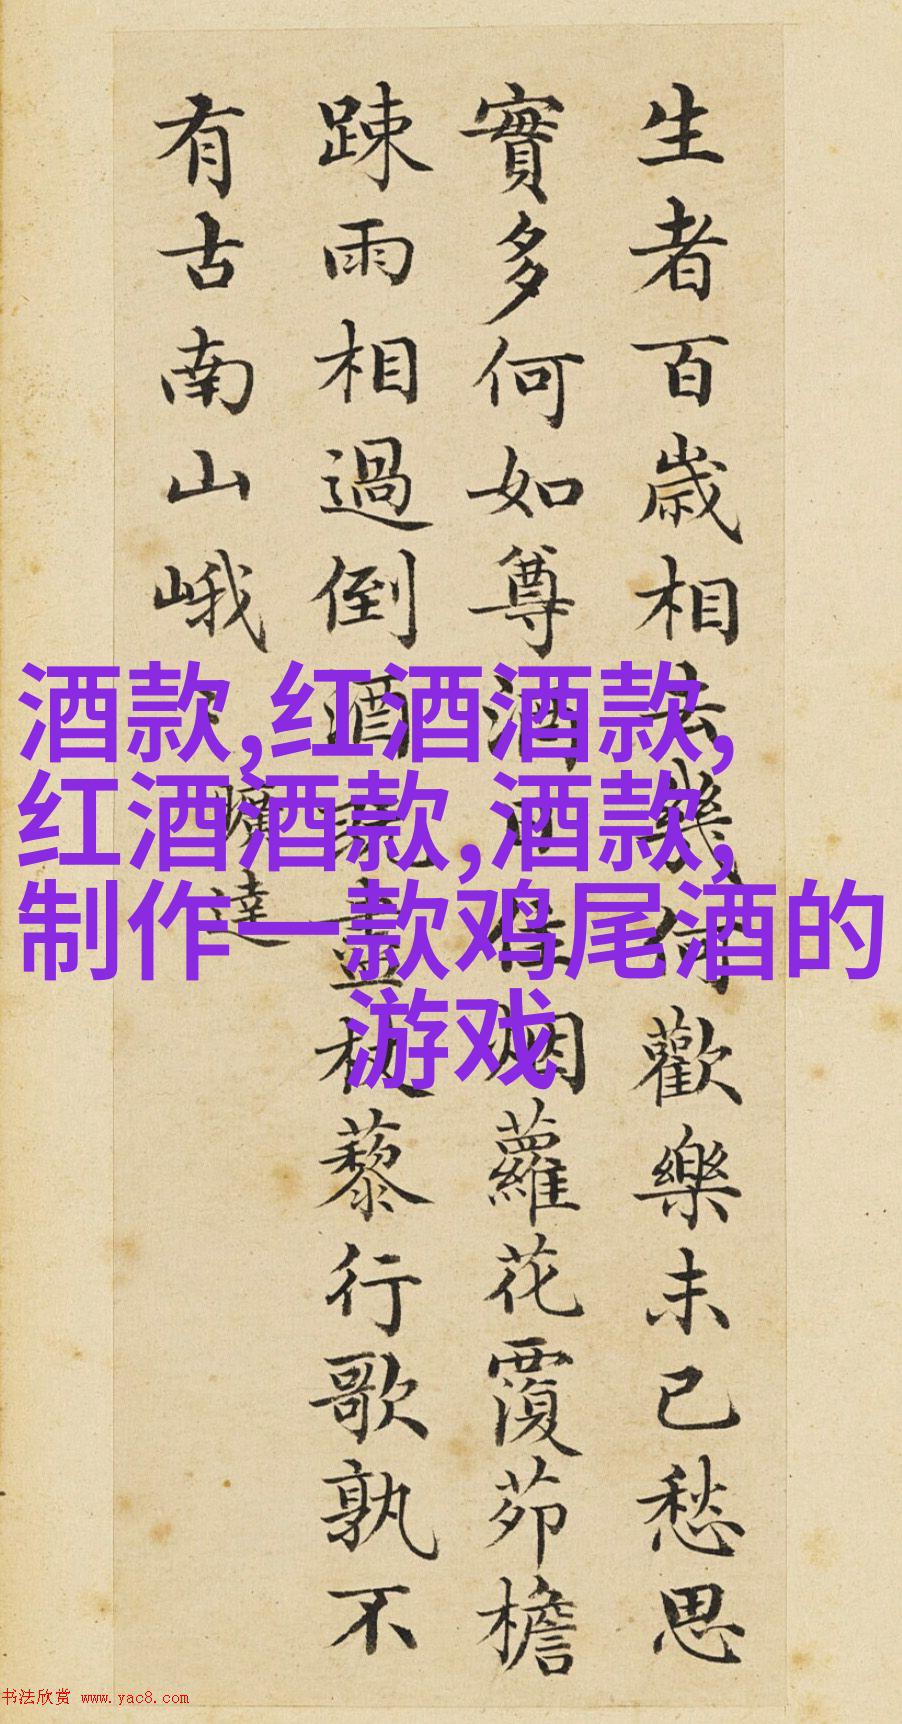 生者百歲相去幾何歡樂未已愁思
實多何如尊酒日往烟蘿花覆茆檐
踈雨相過倒酒既盡杖藜行歌孰不
有古南山峨
曠達
酒款,红酒酒款,
红酒酒款,酒款,
制作一款鸡尾酒的
游戏
书法欣赏 www.yac8.com